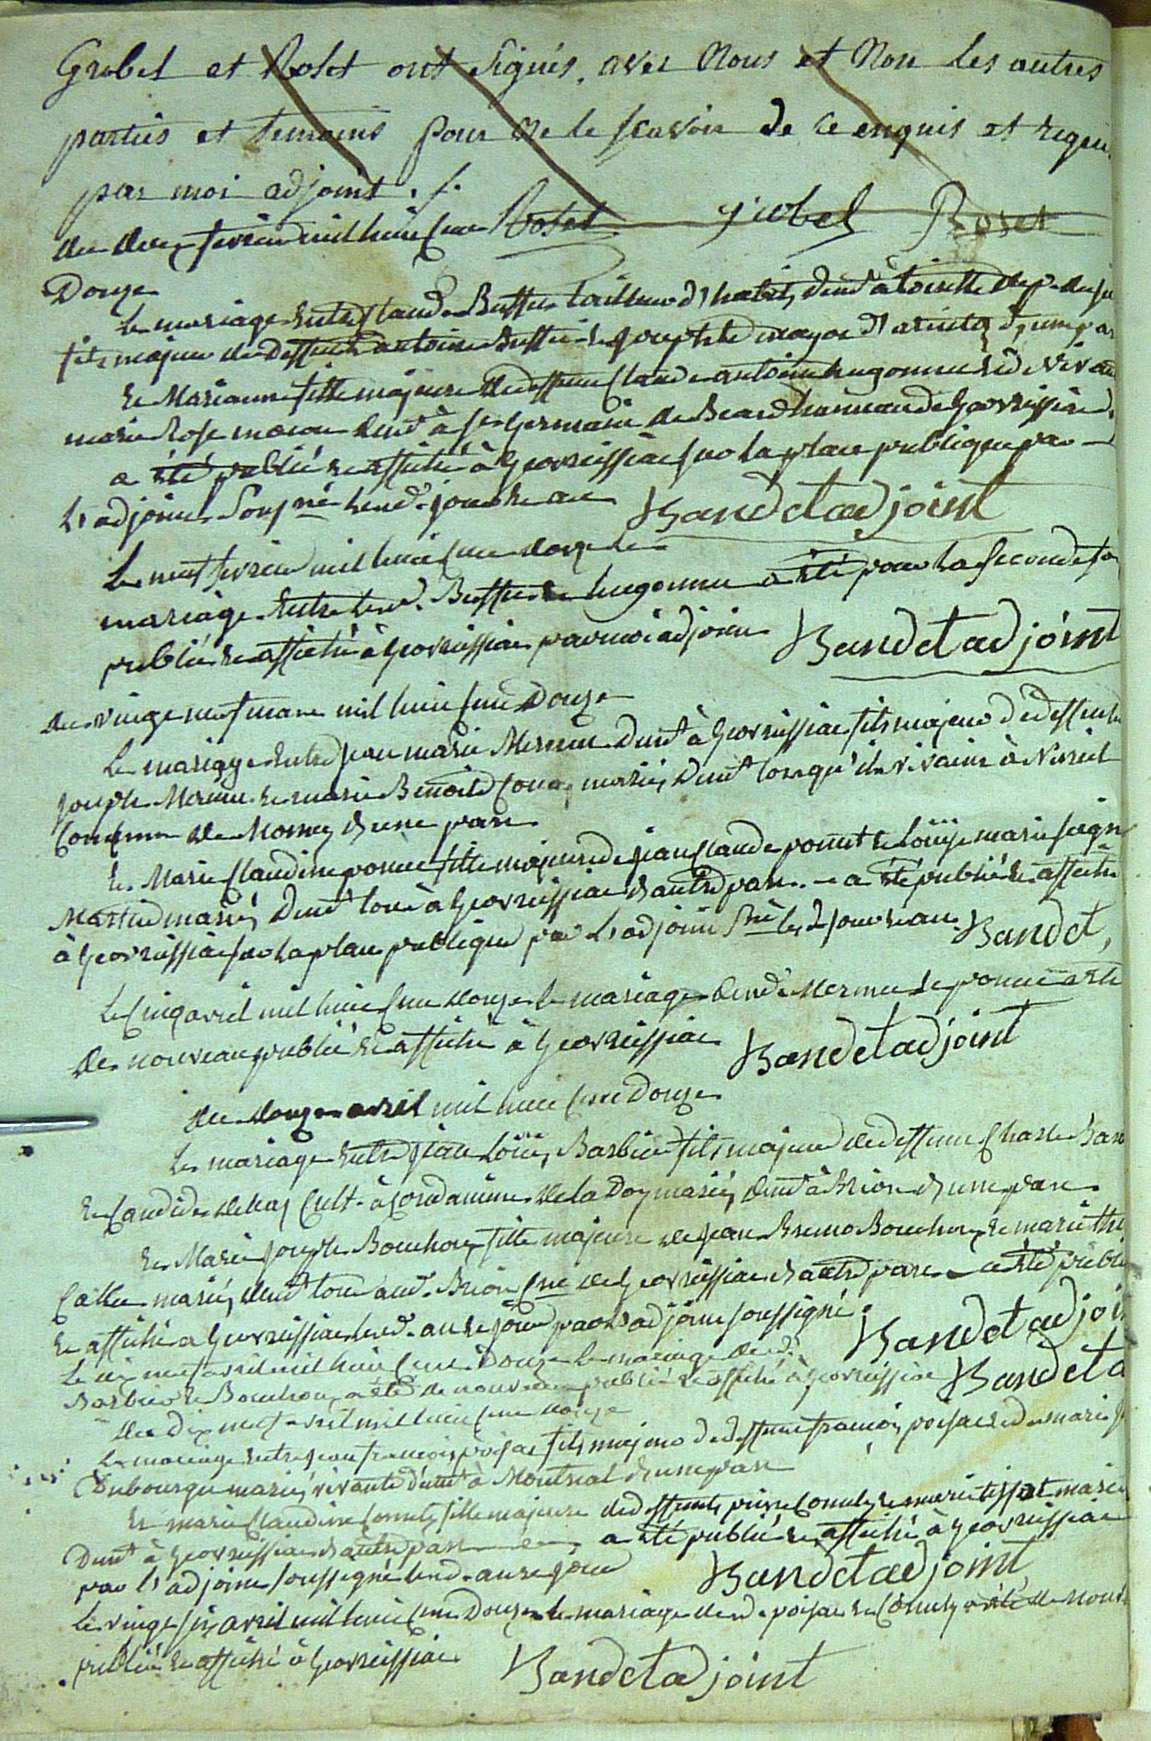 Grobel et Roset ont signés. avec Nous et Non les autres
parties et temoins pour ne le scavoir de ce enquis et requis
par moi adjoint ./.
Roset grobel Roset
du deux fevrier mil huit cent
Douze
le mariage entre Claude Buffet tailleur d'habits, demt à
fils majeur de deffunt antoine Buffet et d'une part
et Marianne fille majeure de deffunt Claude antoine hugonnet et de vivante
marie Rose demt à St Germain de Beard hameau de Geovreissiat
a été publié et affiché à Geovreissiat sur la place publique par
l'adjoint Sousné lesd. jour et an
Bandet adjoint
Le neuf fevrier mil huit cent douze le
mariage entre lesd. Buffet et hugonnet a été pour la seconde fois
publié et affiché à Geovreissiat par moi adjoint
Bandet adjoint
du vingt neuf mars mil huit cent Douze
Le mariage entre Jean marie Mermet demt à Geovreissiat fils majeur de deffunts
joseph Mermet et marie Benoite mariés demt lorsqu'ils vivaient à
Commune de Mornay d'une part
et Marie Claudine ponnet fille majeure de jean Claude ponnet et Loüise marie
mariés demt tous à Geovreissiat d'autre part a été publié et affiché
à Geovreissiat sur la place publique par l'adjoint Sné les d. jour et an
Bandet,
Le Cinq avril mil huit cent douze le mariage desd. Mermet et ponnet a été
de nouveau publié et affiché à Geovreissiat
Bandet adjoint
du douze avril mil huit cent Douze
Le mariage entre jean Loüis Barbier fils majeur de deffunt Charle
et Candide cult. à Condamine de la Doy mariés demt à Brion d'une part
et Marie Josephe Bouchoux fille majeure de jean Bouchoux et marie
mariés demt tous aud. Brion Cne de Geovreissiat d'autre part a été publié
et affiché a Geovreissiat lesd. an et jour par l'adjoint soussigné
Bandet adjoi
Le dix neuf avril mil huit cent Douze le mariage desd.
Barbier et Bouchoux a été de nouveau publié et affiché à Geovreissiat
Bandet a
du dix neuf avril mil huit cent douze
Le mariage entre jean francois poisat fils majeur de deffunt francois poisat et de marie
Dubourget mariés vivante demt à Montreal d'une part
et marie Claudine fille majeure de deffunts pierre et marie tissot mariés
Demt à Geovreissiat d'autre part a été publié et affiché à Geovreissiat
par l'adjoint soussigné lesd. an et jour
Bandet adjoint
Le vingt six avril mil huit cent Douze le mariage desd. poisat et a été de nouv
publié et affiché à Geovreissiat
Bandet adjoint